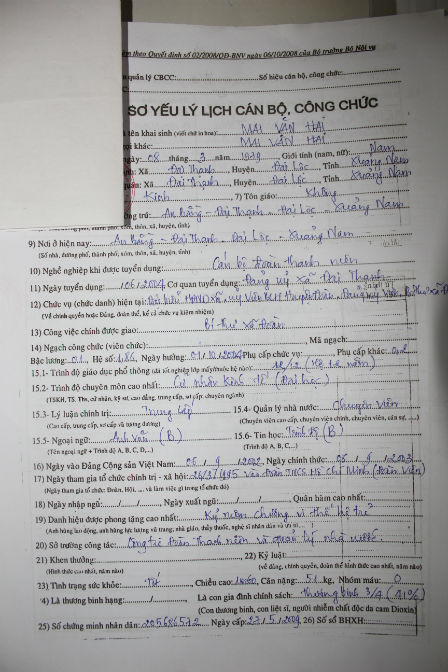 theo Quyết định số 02/2008/QĐ-BNV ngày 06/10/2008 của Bộ trưởng Bộ Nội vụ
quản lý CBCC: Số hiệu cán bộ, công chức:
SƠ YẾU LÝ LỊCH CÁN BỘ, CÔNG CHỨC
tên khai sinh (viết chữ in hoa): MAI VĂN HAI
gọi khác: MAI VĂN HAI
ngày: 08 tháng 3 năm Giới tính (nam, nữ): Nam
Xã Đại Thạnh, Huyện Đại Lộc, Tỉnh Quảng Nam
Xã Đại Thạnh, Huyện Đại Lộc, Tỉnh Quảng Nam
Kinh 7) Tôn giáo: Không
trú: An Bằng - Đại Thạnh - Đại Lộc - Quảng Nam
9) Nơi ở hiện nay: An Bằng - Đại Thạnh - Đại Lộc - Quảng Nam
(Số nhà, đường phố, thành phố, xóm, thôn, xã, huyện, tỉnh)
10) Nghề nghiệp khi được tuyển dụng: Cán bộ đoàn thanh niên
11) Ngày tuyển dụng: /06/2004 Cơ quan tuyển dụng: Đảng uỷ xã Đại Thạnh
12) Chức vụ (chức danh) hiện tại: HĐND xã, uỷ viên BCH Huyện Đoàn, Đảng uỷ viên, Bí thư xã Đoàn
(Về chính quyền hoặc Đảng, đoàn thể, kể cả chức vụ kiêm nhiệm)
13) Công việc chính được giao: Bí thư xã Đoàn
14) Ngạch công chức (viên chức): Mã ngạch:
Bậc lương: 01, Hệ số: 1,86, Ngày hưởng: 01/10/2004 Phụ cấp chức vụ: Phụ cấp khác: 0,2
15.1- Trình độ giáo dục phổ thông (đã tốt nghiệp lớp mấy/thuộc hệ nào): 12/12
15.2- Trình độ chuyên môn cao nhất: Cử nhân Kinh tế (Đại học)
(TSKH, TS, Ths, cử nhân, kỹ sư, cao đẳng, trung cấp, sơ cấp; chuyên ngành)
15.3- Lý luận chính trị: Trung cấp 15.4- Quản lý nhà nước: Chuyên viên
(Cao cấp, trung cấp, sơ cấp và tương đương) (Chuyên viên cao cấp, chuyên viên chính, chuyên viên, cán sự, ...)
15.5- Ngoại ngữ: Anh văn (B) 15.6- Tin học: Trình độ (B)
(Tên ngoại ngữ + Trình độ A, B, C, D,...) (Trình độ A, B, C,...)
16) Ngày vào Đảng Cộng sản Việt Nam: 05/9/2002, Ngày chính thức: 05/9/2003
17) Ngày tham gia tổ chức chính trị - xã hội: 26/3/1995 Vào Đoàn TNCS Hồ Chí Minh (Đoàn viên)
(Ngày tham gia tổ chức: Đoàn, Hội, ... và làm việc gì trong tổ chức đó)
18) Ngày nhập ngũ: / / , Ngày xuất ngũ: / / Quân hàm cao nhất:
19) Danh hiệu được phong tặng cao nhất: Kỷ niệm chương vì thế hệ trẻ
(Anh hùng lao động, anh hùng lực lượng vũ trang; nhà giáo, thầy thuốc, nghệ sĩ nhân dân và ưu tú, ...)
20) Sở trường công tác: Công tác Đoàn Thanh niên và quản lý nhà nước.
21) Khen thưởng: 22) Kỷ luật:
(Hình thức cao nhất, năm nào) (về đảng, chính quyền, đoàn thể hình thức cao nhất, năm nào)
23) Tình trạng sức khỏe: Tốt, Chiều cao: 1m60, Cân nặng: 51 kg, Nhóm máu: O
24) Là thương binh hạng: / , Là con gia đình chính sách: Thương binh 3/4 (41%)
(Con thương binh, con liệt sĩ, người nhiễm chất độc da cam Dioxin)
25) Số chứng minh nhân dân: 205686572 Ngày cấp: 27/5/2009 26) Số sổ BHXH: